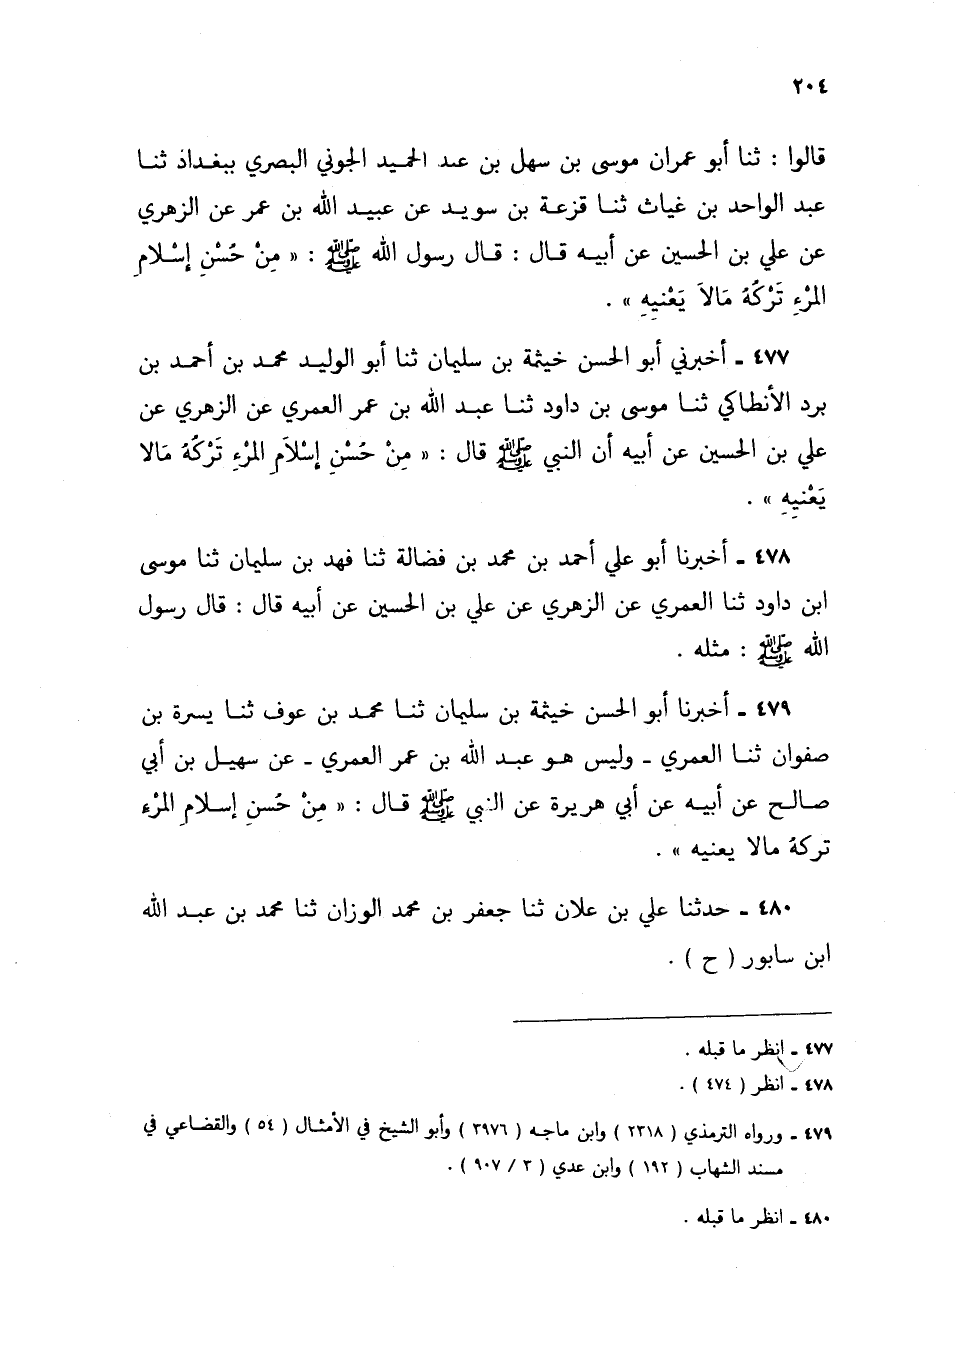 ٢٠٤
قالوا : ثنا أبو عمران موسى بن سهل بن عبد الحميد الجوني البصري ببغداذ ثنا
عبد الواحد بن غياث ثنا قزعة بن سويد عن عبيد الله بن عمر عن الزهري
عن علي بن الحسين عن أبيه قال : قال رسول الله ﷺ : « مِنْ حُسْنِ إِسْلامِ
المْرْءِ تَرْكُهُ مَالاَ يَعْنيهِ » .
٤٧٧ ـ أخبرني أبو الحسن خيثمة بن سليمان ثنا أبو الوليد محمد بن أحمد بن
برد الأنطاكي ثنا موسى بن داود ثنا عبد الله بن عمر العمري عن الزهري عن
علي بن الحسين عن أبيه أن النبي ﷺ قال : « مِنْ حُسْنِ إِسْلاَمِ المْرْءِ تَرْكُهُ مَالا
يَعْنيهِ » .
٤٧٨ ـ أخبرنا أبو علي أحمد بن محمد بن فضالة ثنا فهد بن سليمان ثنا موسى
ابن داود ثنا العمري عن الزهري عن علي بن الحسين عن أبيه قال : قال رسول
الله ﷺ : مثله .
٤٧٩ ـ أخبرنا أبو الحسن خيثمة بن سليمان ثنا محمد بن عوف ثنا يسرة بن
صفوان ثنا العمري ـ وليس هو عبد الله بن عمر العمري ـ عن سهيل بن أبي
صالح عن أبيه عن أبي هريرة عن النبي ﷺ قال : « مِنْ حُسنِ إسلامِ المْرْءِ
تركهُ مالا يعنيه » .
٤٨٠ ـ حدثنا علي بن علان ثنا جعفر بن محمد الوزان ثنا محمد بن عبد الله
ابن سابور ( ح ) .
٤٧٧ ـ انظر ما قبله .
٤٧٨ ـ انظر ( ٤٧٤ ) .
٤٧٩ ـ ورواه الترمذي ( ٢٣١٨ ) وابن ماجه ( ٣٩٧٦ ) وأبو الشيخ في الأمثال ( ٥٤ ) والقضاعي في
مسند الشهاب ( ١٩٢ ) وابن عدي ( ٣ / ٩٠٧ ) .
٤٨٠ ـ انظر ما قبله .